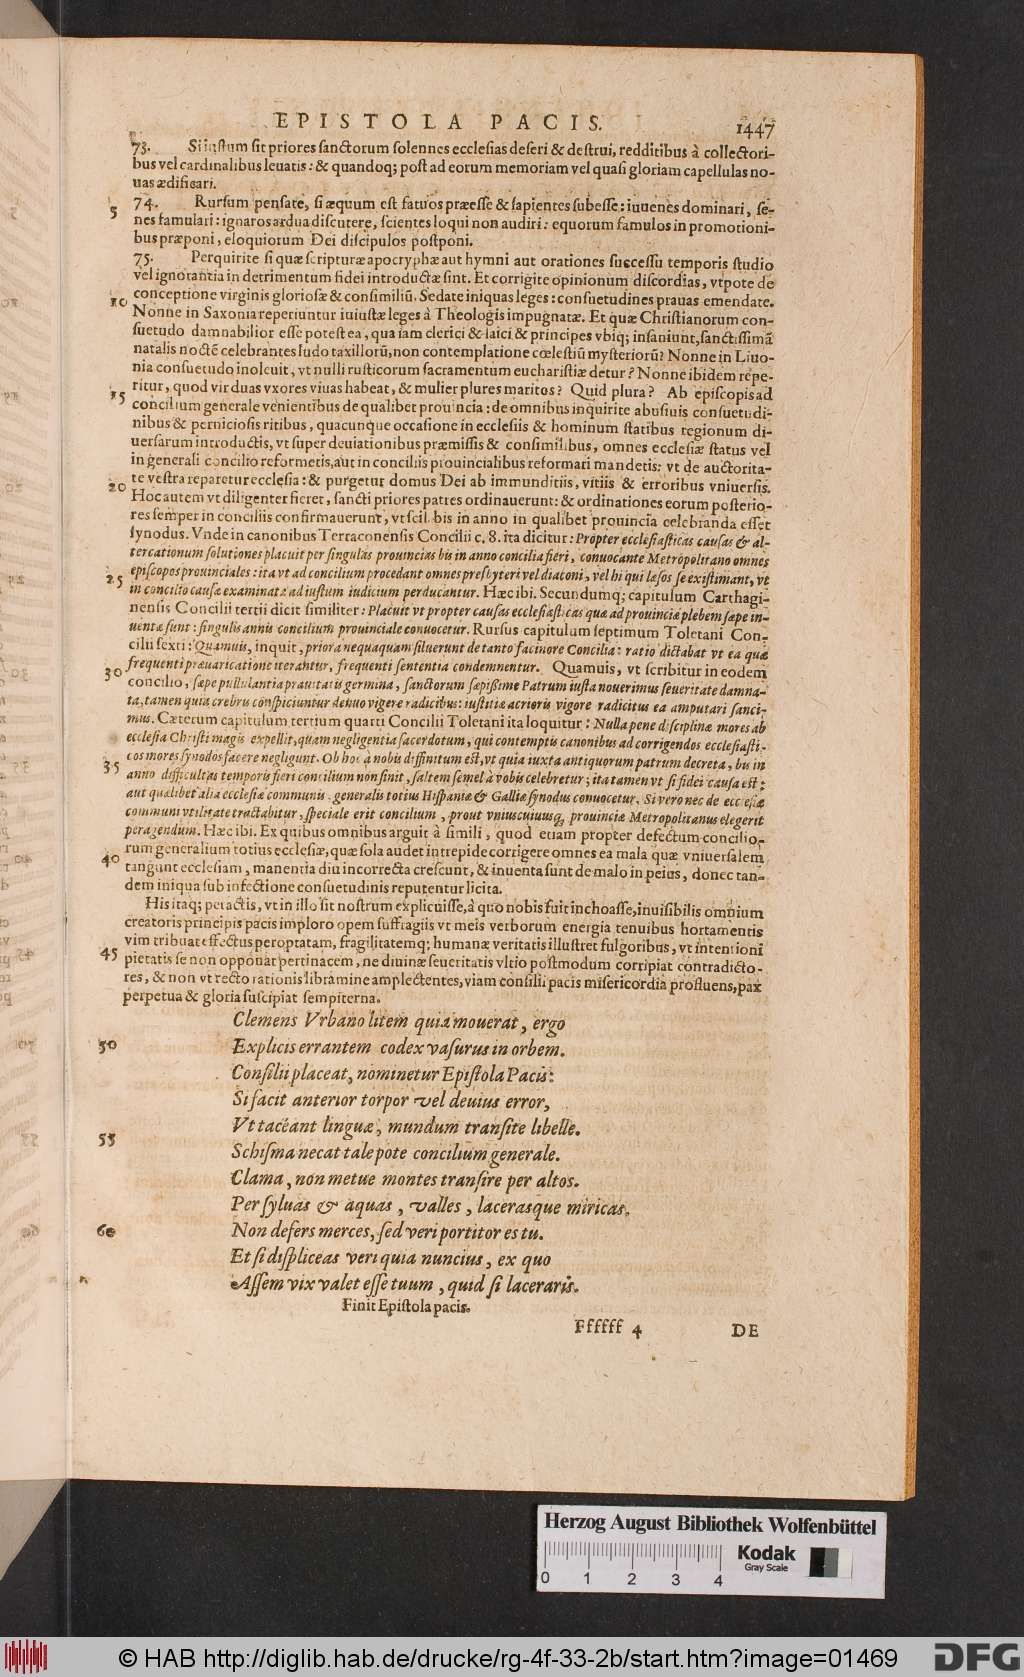 EPISTOLA PACIS. 1447
73. Si iustum sit priores sanctorum solennes ecclesias deseri & destrui, redditibus à collectori-
bus vel cardinalibus leuatis: & quandoq; post ad eorum memoriam vel quasi gloriam capellulas no-
uas ædificari.
5 74. Rursum pensate, si æquum est fatuos præesse & sapientes subesse: iuuenes dominari, se-
nes famulari: ignaros ardua discutere, scientes loqui non audiri: equorum famulos in promotioni-
bus præponi, eloquiorum Dei discipulos postponi.
75. Perquirite si quæ scripturæ apocryphæ aut hymni aut orationes successu temporis studio
vel ignorantia in detrimentum fidei introductæ sint. Et corrigite opinionum discordias, vtpote de
10 conceptione virginis gloriosæ & consimiliũ. Sedate iniquas leges: consuetudines prauas emendate.
Nonne in Saxonia reperiuntur iniustæ leges à Theologis impugnatæ. Et quæ Christianorum con-
suetudo damnabilior esse potest ea, qua iam clerici & laici & principes vbiq; insaniunt, sanctissimã
natalis noctẽ celebrantes ludo taxillorũ, non contemplatione cœlestiũ mysteriorũ? Nonne in Liuo-
nia consuetudo inoleuit, vt nulli rusticorum sacramentum eucharistiæ detur? Nonne ibidem repe-
15 ritur, quod vir duas vxores viuas habeat, & mulier plures maritos? Quid plura? Ab episcopis ad
concilium generale venientibus de qualibet prouincia: de omnibus inquirite abusiuis consuetudi-
nibus & perniciosis ritibus, quacunque occasione in ecclesiis & hominum statibus regionum di-
uersarum introductis, vt super deuiationibus præmissis & consimilibus, omnes ecclesiæ status vel
in generali concilio reformetis, aut in conciliis prouincialibus reformari mandetis: vt de auctorita-
20 te vestra reparetur ecclesia: & purgetur domus Dei ab immunditiis, vitiis & erroribus vniuersis.
Hoc autem vt diligenter fieret, sancti priores patres ordinauerunt: & ordinationes eorum posterio-
res semper in conciliis confirmauerunt, vt scil. bis in anno in qualibet prouincia celebranda esset
synodus. Vnde in canonibus Terraconensis Concilii c. 8. ita dicitur: Propter ecclesiasticas causas & al-
tercationum solutiones placuit per singulas prouincias bis in anno concilia fieri, conuocante Metropolitano omnes
25 episcopos prouinciales: ita vt ad concilium procedant omnes presbyteri vel diaconi, vel hi qui læsos se existimant, vt
in concilio causæ examinatæ ad iustum iudicium perducantur. Hæc ibi. Secundumq; capitulum Carthagi-
nensis Concilii tertii dicit similiter: Placuit vt propter causas ecclesiasticas quæ ad prouinciæ plebem sæpe in-
uentæ sunt: singulis annis concilium prouinciale conuocetur. Rursus capitulum septimum Toletani Con-
cilii sexti: Quamuis, inquit, priora nequaquam siluerunt de tanto facinore Concilia: ratio dictabat vt ea quæ
30 frequenti præuaricatione iterantur, frequenti sententia condemnentur. Quamuis, vt scribitur in eodem
concilio, sæpe pullulantia prauitatis germina, sanctorum sæpißime Patrum iusta nouerimus seueritate damna-
ta, tamen quia crebru conspiciuntur denuo vigere radicibus: iustitiæ acrioris vigore radicitus ea amputari sanci-
mus. Cæterum capitulum tertium quarti Concilii Toletani ita loquitur: Nulla pene disciplinæ mores ab
ecclesia Christi magis expellit, quam negligentia sacerdotum, qui contemptis canonibus ad corrigendos ecclesiasti-
35 cos mores synodos facere negligunt. Ob hoc à nobis diffinitum est, vt quia iuxta antiquorum patrum decreta, bis in
anno difficultas temporis fieri concilium non sinit, saltem semel à vobis celebretur; ita tamen vt si fidei causa est:
aut quælibet alia ecclesiæ communis. generalis totius Hispaniæ & Galliæ synodus conuocetur. Si vero nec de ecclesiæ
communi vtilitate tractabitur, speciale erit concilium, prout vniuscuiusq, prouinciæ Metropolitanus elegerit
peragendum. Hæc ibi. Ex quibus omnibus arguit à simili, quod etiam propter defectum concilio-
40 rum generalium totius ecclesiæ, quæ sola audet intrepide corrigere omnes ea mala quæ vniuersalem
tangunt ecclesiam, manentia diu incorrecta crescunt, & inuenta sunt de malo in peius, donec tan-
dem iniqua sub infectione consuetudinis reputentur licita.
His itaq; peractis, vt in illo sit nostrum explicuisse, à quo nobis fuit inchoasse, inuisibilis omnium
creatoris principis pacis imploro opem suffragiis vt meis verborum energia tenuibus hortamentis
vim tribuat effectus peroptatam, fragilitatemq; humanæ veritatis illustret fulgoribus, vt intentioni
45 pietatis se non opponat pertinacem, ne diuinæ seueritatis vltio postmodum corripiat contradicto-
res, & non vt recto rationis libramine amplectentes, viam consilii pacis misericordia profluens, pax
perpetua & gloria suscipiat sempiterna.
Clemens Vrbano litem quia mouerat, ergo
50 Explicis errantem codex vasurus in orbem.
Consilii placeat, nominetur Epistola Pacis:
Si facit anterior torpor vel deuius error,
Vt taceant linguæ, mundum transite libelle.
55 Schisma necat tale pote concilium generale.
Clama, non metue montes transire per altos.
Per syluas & aquas, valles, lacerasque miricas.
60 Non defers merces, sed veri portitor es tu.
Et si displiceas veri quia nuncius, ex quo
Assem vix valet esse tuum, quid si laceraris.
Finit Epistola pacis.
Ffffff 4 DE
Herzog August Bibliothek Wolfenbüttel
Kodak
Gray Scale
0 1 2 3 4
© HAB http://diglib.hab.de/drucke/rg-4f-33-2b/start.htm?image=01469
DFG